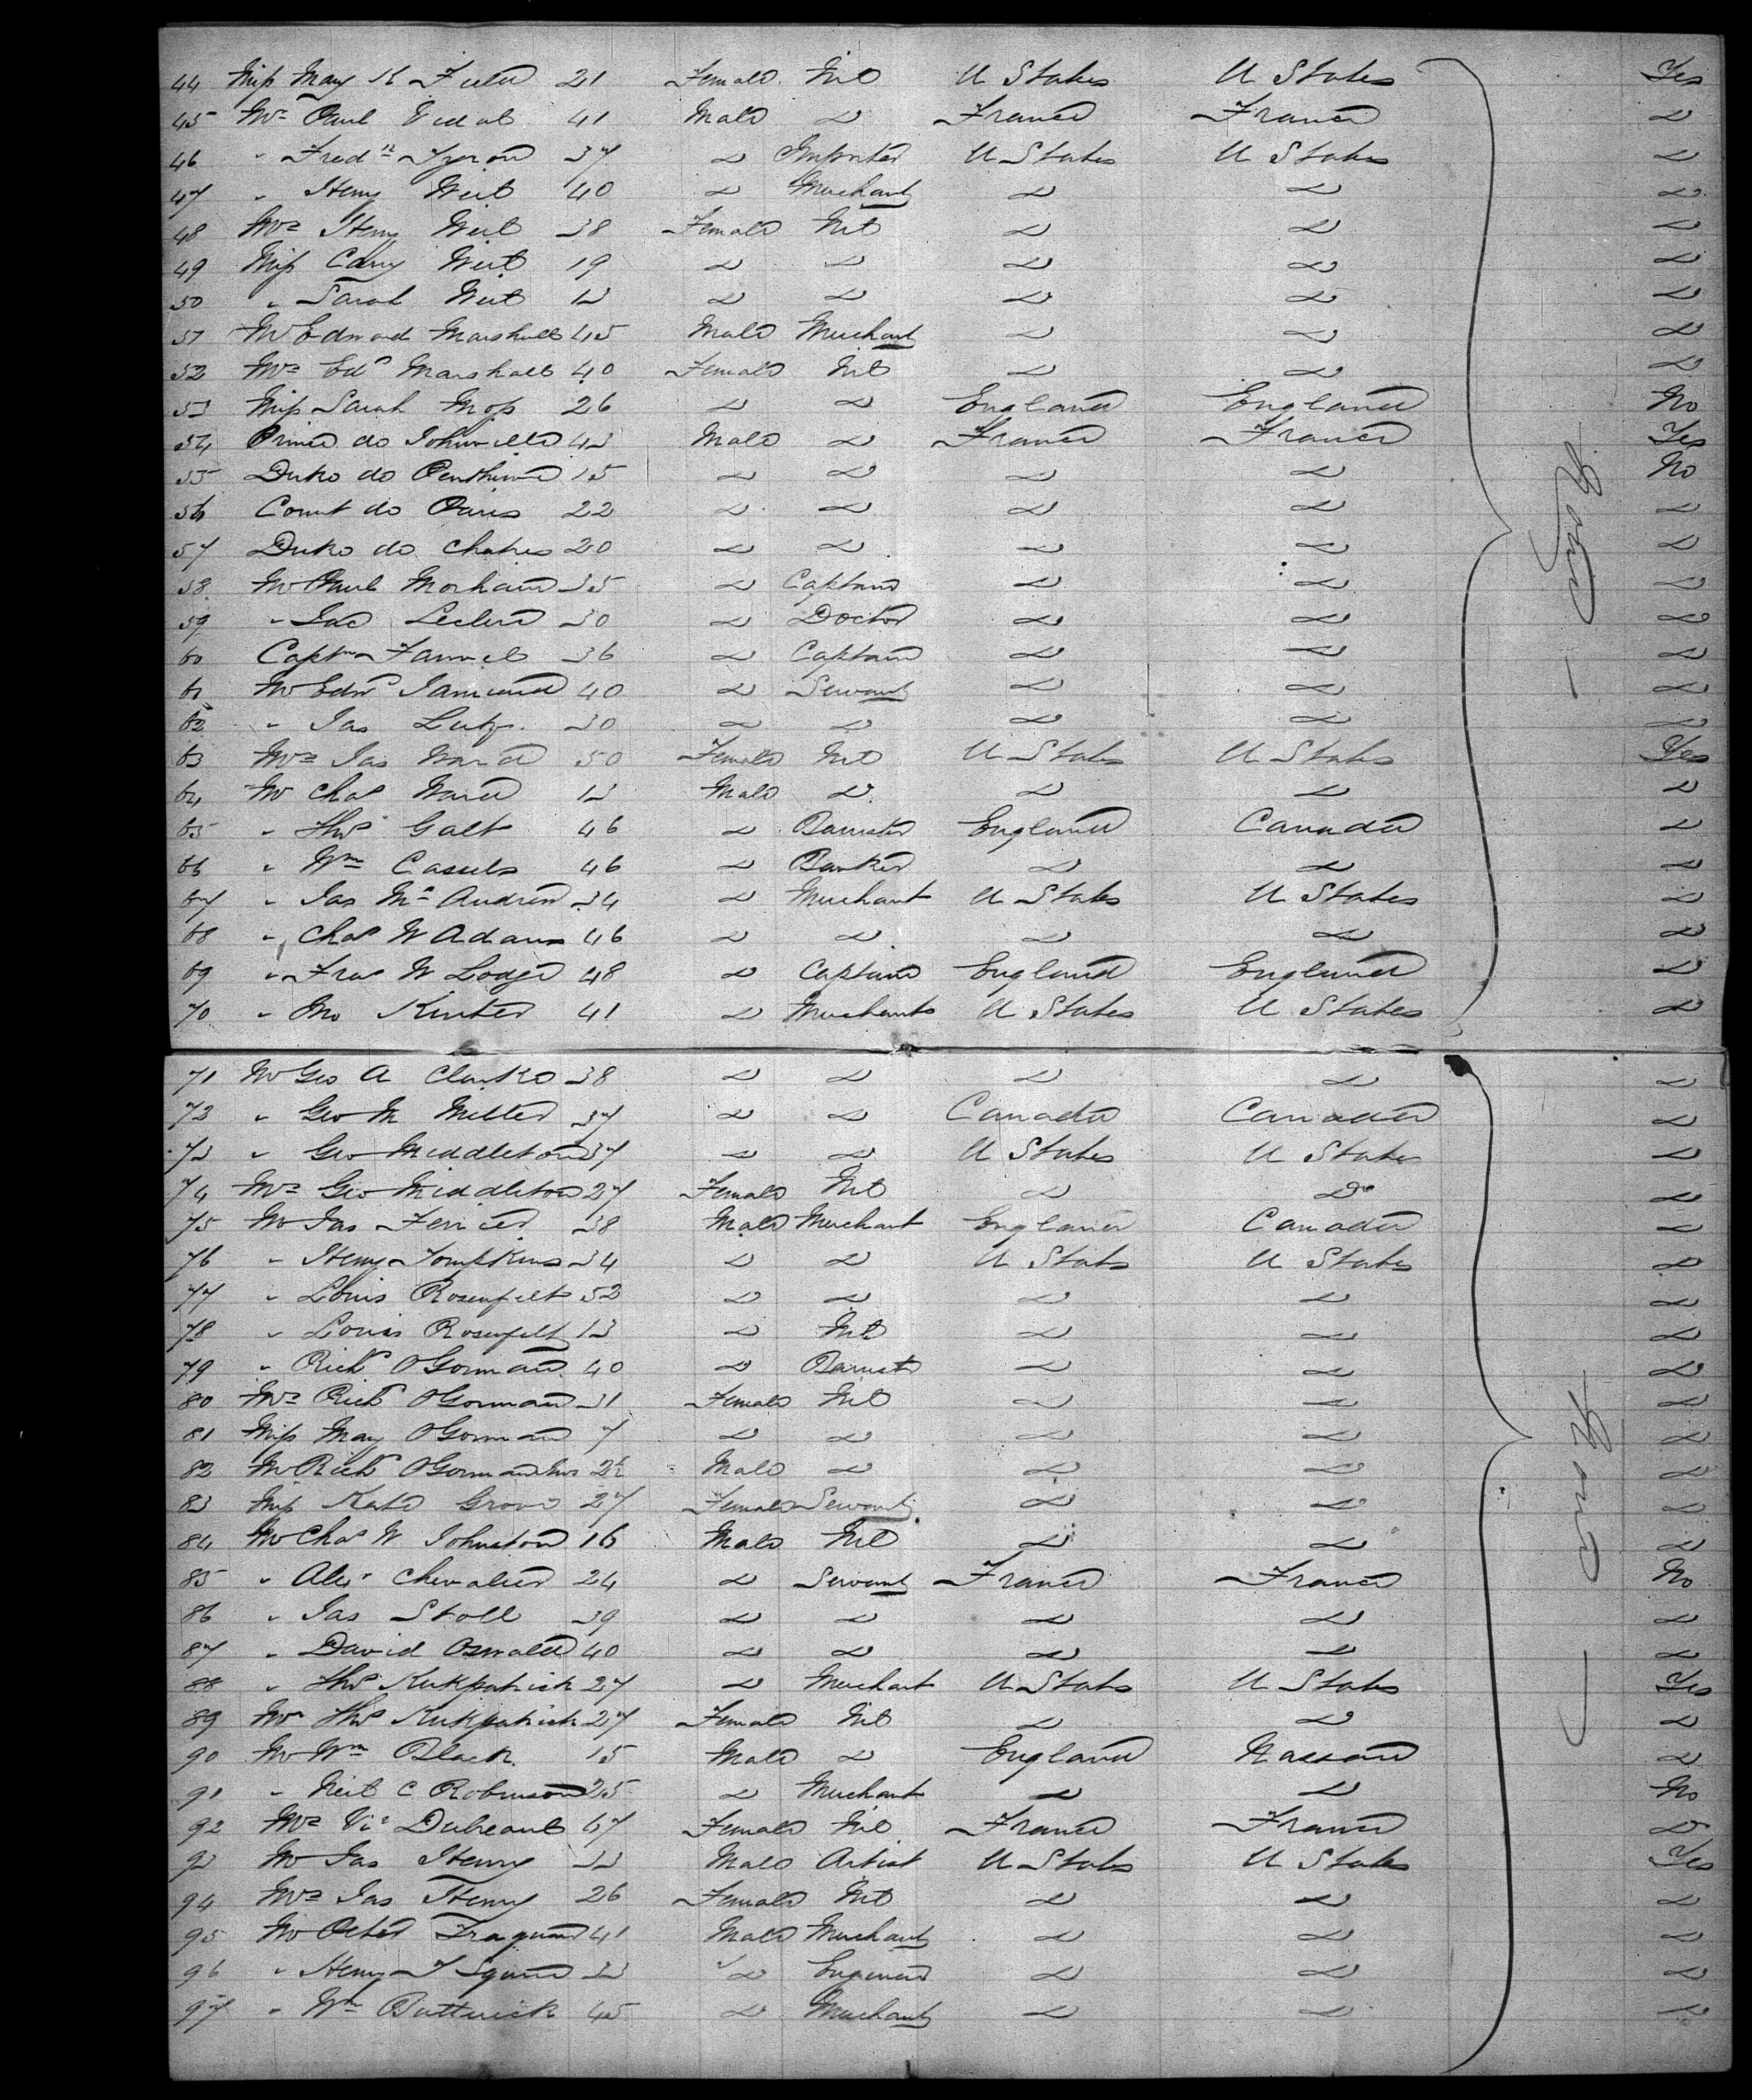 44 Miss Mary K Field 21 Female Nil U States U States Yes
45 Mr Paul Vidal 41 Male Do France France Do
46 " Fredk Tyron 37 Do Importer U States U States Do
47 " Henry Weil 40 Do Merchant Do Do Do
48 Mrs Henry Weil 38 Female Nil Do Do Do
49 Miss Carry Weil 19 Do Do Do Do Do
50 " Sarah Weil 13 Do Do Do Do Do
51 Mr Edward Marshall 45 Male Merchant Do Do Do
52 Mrs Edd Marshall 40 Female Nil Do Do Do
53 Miss Sarah Moss 26 Do Do England England No
54 Prince de Johnville 43 Male Do France France Yes
55 Duke de 15 Do Do Do Do No
56 Count de Paris 22 Do Do Do Do Do
57 Duke de Chatres 20 Do Do Do Do Do
58 Mr Paul Morhain 35 Do Captain Do Do Do
59 " Leclerc 30 Do Doctor Do Do Do
60 Captn 36 Do Captain Do Do Do
61 Mr Edwd 40 Do Servant Do Do Do
62 " Jas Lutz 30 Do Do Do Do Do
63 Mrs Jas Ward 50 Female Nil U States U States Yes
64 Mr Chas Ward 13 Male Do Do Do Do
65 " Thos Galt 46 Do Barrister England Canada Do
66 " Wm Cassels 46 Do Banker Do Do Do
67 " Jas McAndrew 34 Do Merchant U States U States Do
68 " Chas W Adams 46 Do Do Do Do Do
69 " Fras W Lodge 48 Do Captain England England Do
70 " Jno Kinter 41 Do Merchants U States U States Do
Cabin
71 Mr Geo A Clarke 38 Do Do Do Do Do
72 " Geo M Miller 37 Do Do Canada Canada Do
73 " Geo Middleton 37 Do Do U States U States Do
74 Mrs Geo Middleton 27 Female Nil Do Do Do
75 Mr Jas Ferrier 38 Male Merchant England Canada Do
76 " Henry Tompkins 34 Do Do U States U States Do
77 " Louis Rosenfelt 52 Do Do Do Do Do
78 " Louis Rosenfelt 13 Do Nil Do Do Do
79 " Richd OGorman 40 Do Barrist Do Do Do
80 Mrs Richd OGorman 31 Female Nil Do Do Do
81 Miss May OGorman 7 Do Do Do Do Do
82 Mr Richd OGorman Jnr 2½ Male Do Do Do Do
83 Miss Kate Grove 27 Female Servant Do Do Do
84 Mr Chas W Johnston 16 Male Nil Do Do Do
85 " Alexr Chevalier 24 Do Servant France France No
86 " Jas Stoll 39 Do Do Do Do Do
87 " David Oswald 40 Do Do Do Do Do
88 " Thos Kirkpatrick 27 Do Merchant U States U States Yes
89 Mrs Thos Kirkpatrick 27 Female Nil Do Do Do
90 Mr Wm Black 15 Male Do England Nassau Do
91 " Neil C Robinson 25 Do Merchant Do Do No
92 Mrs Vic Dubeault 67 Female Nil France France Do
93 Mr Jas Henry 33 Male Artist U States U States Yes
94 Mrs Jas Henry 26 Female Nil Do Do Do
95 Mr 41 Male Merchant Do Do Do
96 " Henry T Squire 33 Do Engineer Do Do Do
97 " Wm Buttrick 45 Do Merchant Do Do Do
Cabin